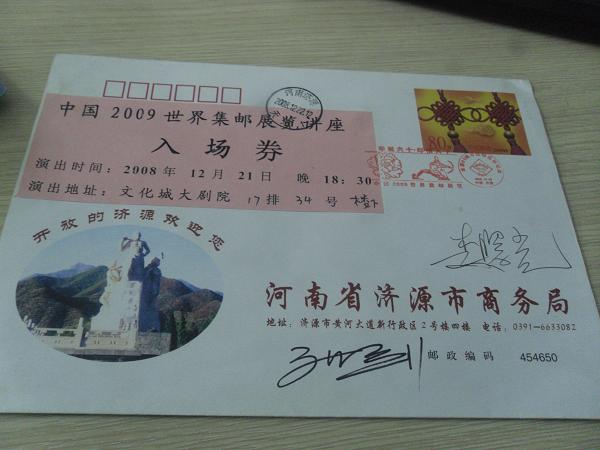 中国 2009 世界集邮展览讲座
入场券
演出时间：2008 年 12 月 21 日 晚 18：30
演出地址：文化城大剧院 17 排 34 号 楼下
河南济源
80分
开放的济源欢迎您
河南省济源市商务局
地址：济源市黄河大道新行政区2号楼四楼 电话：0391-6633082
邮政编码 454650